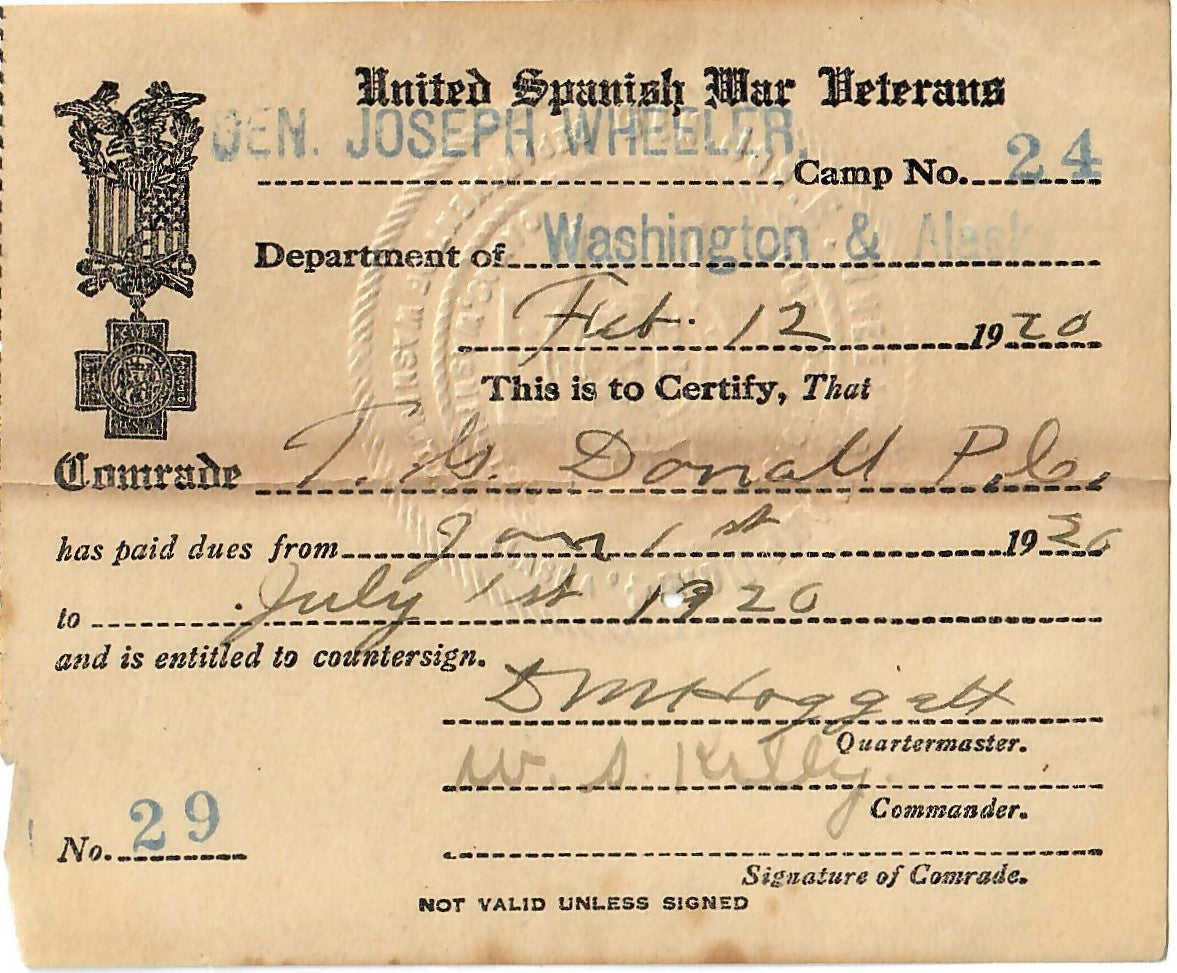 United Spanish War Veterans
GEN. JOSEPH WHEELER, Camp No. 24
Department of Washington & Alask
Feb. 12 1920
This is to Certify, That
Comrade T. G. Donall P.C.
has paid dues from Jan 1st 1920
to July 1st 1920
and is entitled to countersign.
D M Hoggatt
Quartermaster.
W. S. Kelly.
Commander.
No. 29
Signature of Comrade.
NOT VALID UNLESS SIGNED